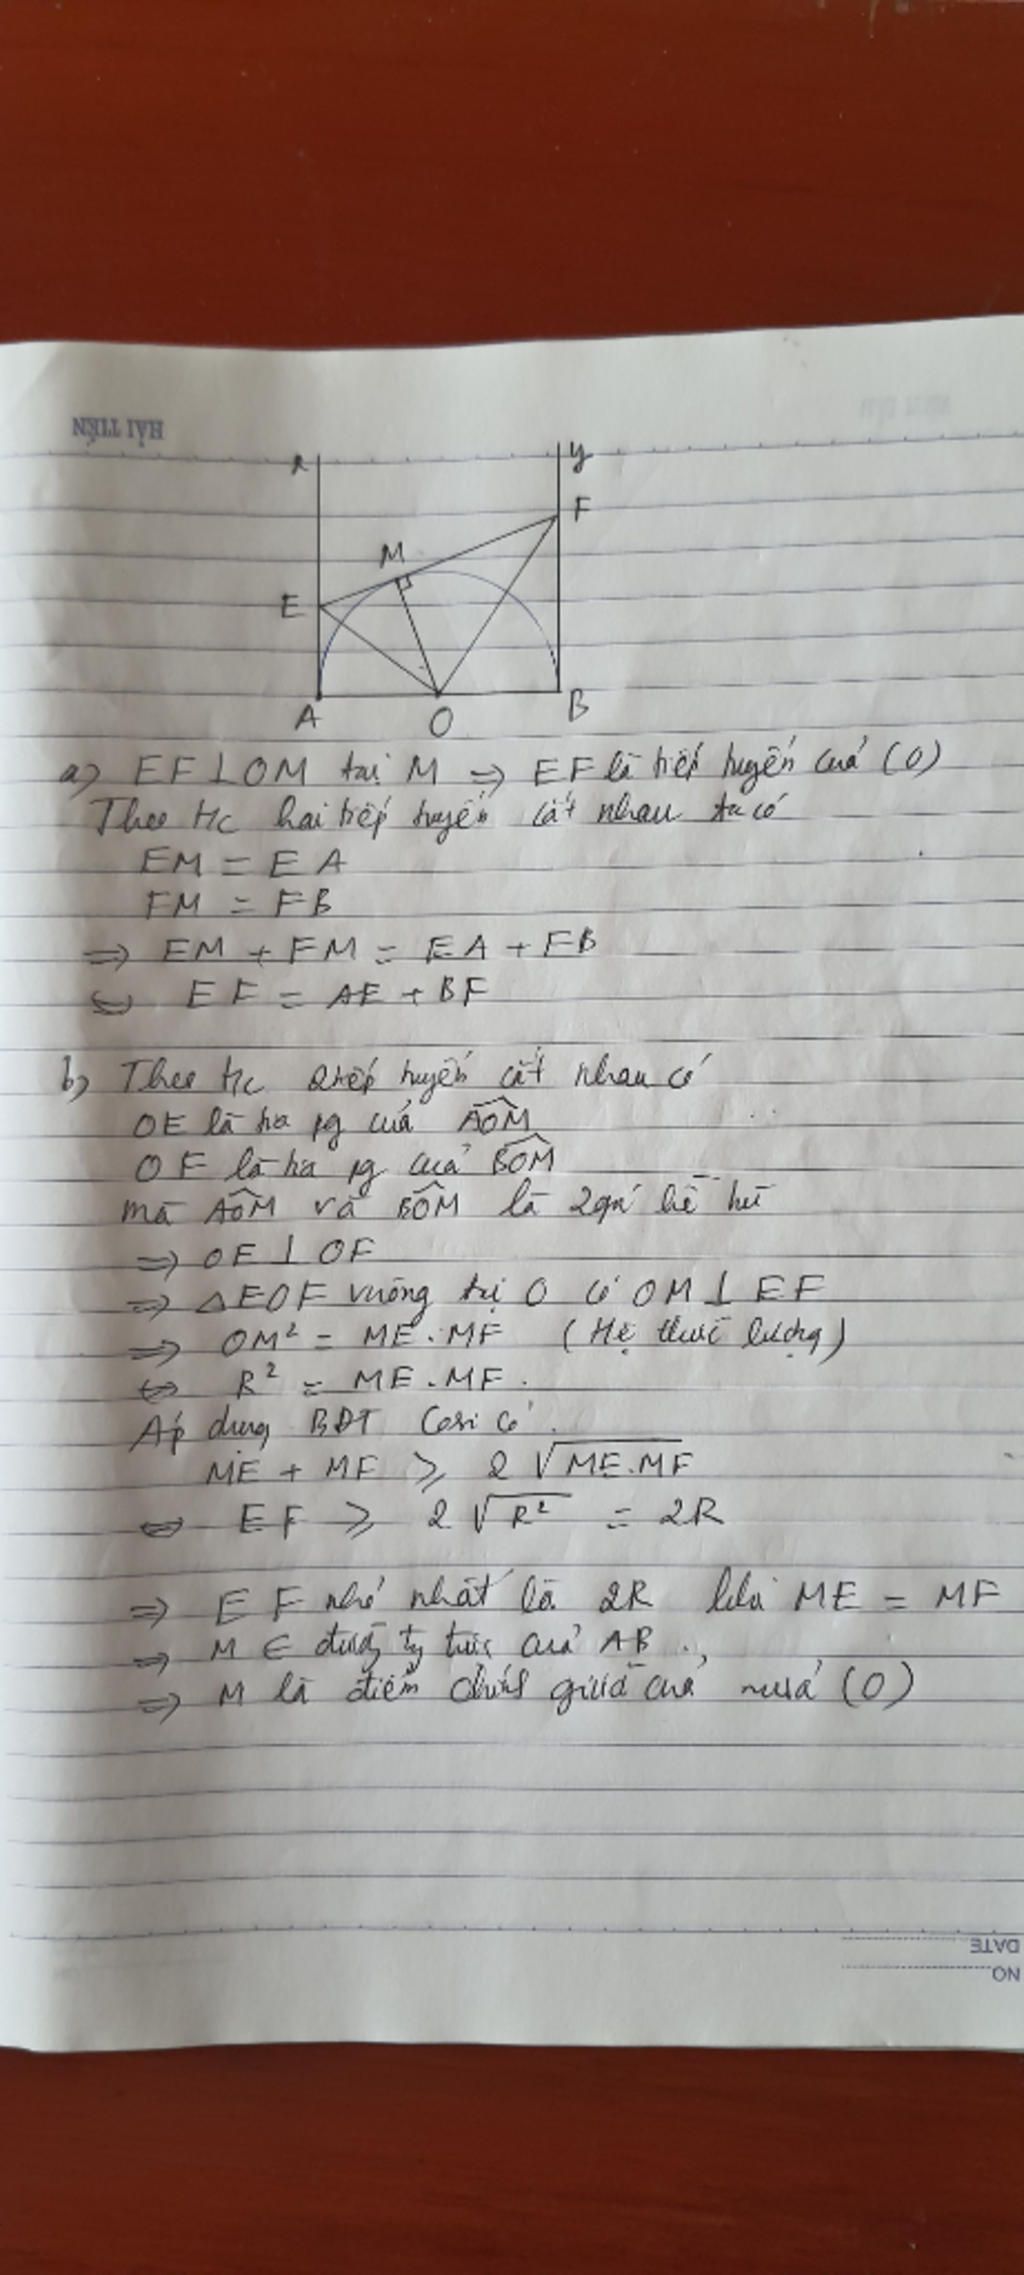 HẢI TIẾN
x y
F
M
E
A O B
a) EF ⊥ OM tại M => EF là tiếp tuyến của (O)
Theo t/c hai tiếp tuyến cắt nhau ta có
EM = EA
FM = FB
=> EM + FM = EA + FB
<=> EF = AE + BF
b) Theo t/c 2 tiếp tuyến cắt nhau có
OE là tia pg của AOM
OF là tia pg của BOM
mà AOM và BOM là 2 góc kề bù
=> OE ⊥ OF
=> △EOF vuông tại O có OM ⊥ EF
=> OM² = ME.MF (Hệ thức lượng)
<=> R² = ME.MF.
Áp dụng BĐT Cosi có
ME + MF ≥ 2√ME.MF
<=> EF ≥ 2√R² = 2R
=> EF nhỏ nhất là 2R khi ME = MF
=> M ∈ đường trực của AB.
=> M là điểm chính giữa của nửa (O)
DATE
NO